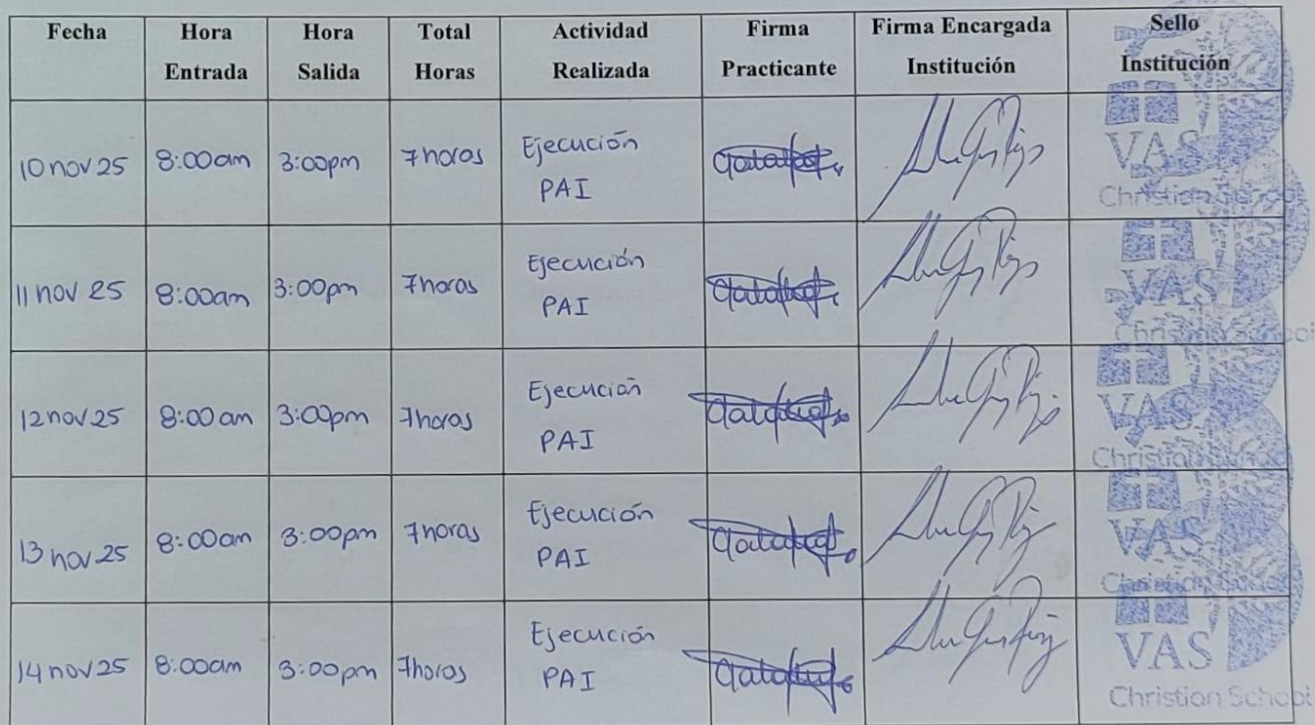 Fecha Hora Entrada Hora Salida Total Horas Actividad Realizada Firma Practicante Firma Encargada Institución Sello Institución
10 nov 25 8:00am 3:00pm 7 horas Ejecución PAI VAS Christian School
11 nov 25 8:00am 3:00pm 7 horas Ejecución PAI VAS Christian School
12 nov 25 8:00 am 3:00pm 7 horas Ejecución PAI VAS Christian School
13 nov 25 8:00am 3:00pm 7 horas Ejecución PAI VAS Christian School
14 nov 25 8:00am 3:00pm 7 horas Ejecución PAI VAS Christian School